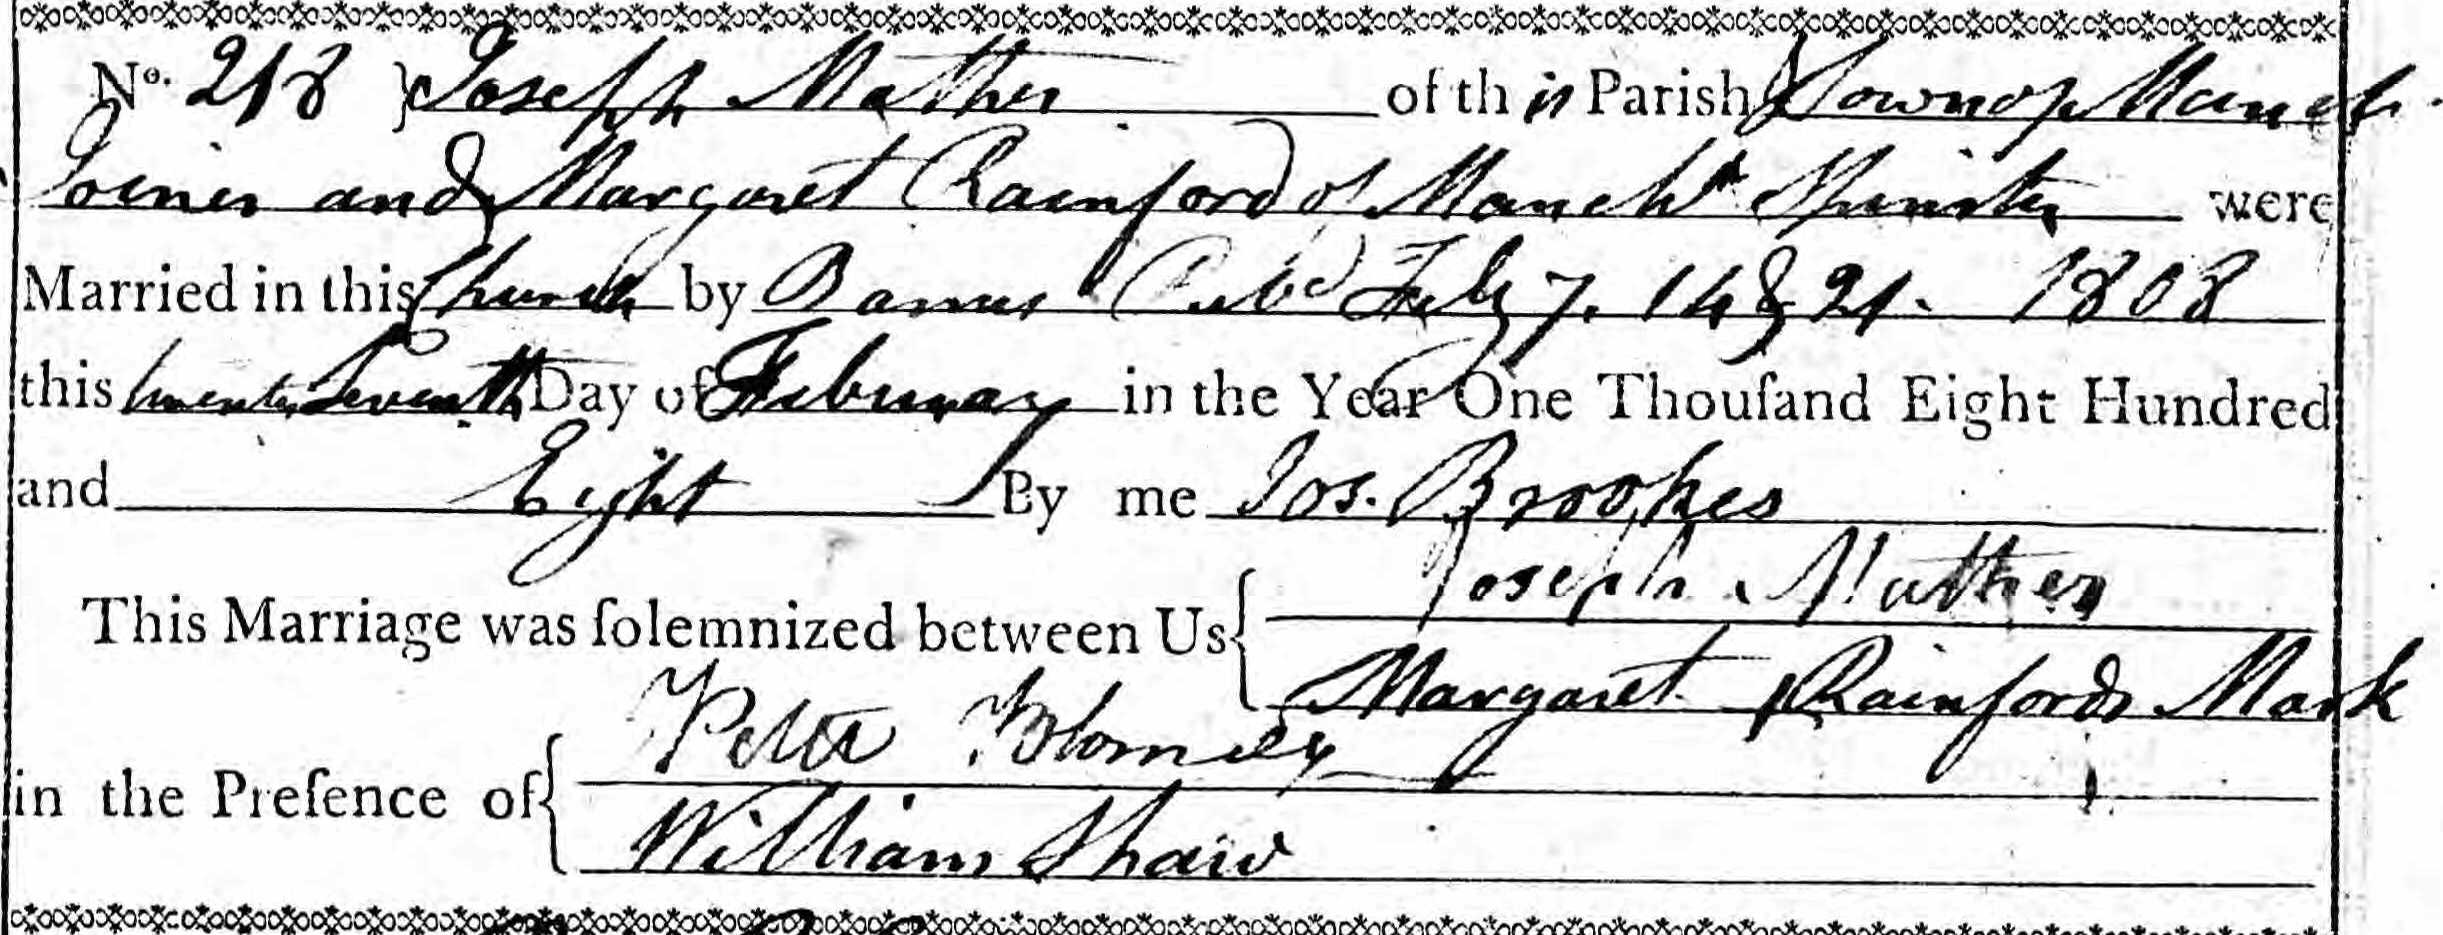 No. 218 } Joseph Mather of this Parish & Town of Manch.
Joiner and Margaret Rainford of Manchr Spinster were
Married in this Church by Banns Pubd Feby 7. 14 & 21. 1808
this twenty Seventh Day of February in the Year One Thouſand Eight Hundred
and Eight By me Jos. Brookes
This Marriage was ſolemnized between Us { Joseph Mather
Margaret Rainfords Mark
in the Preſence of { Peter Blomeley
William Shaw